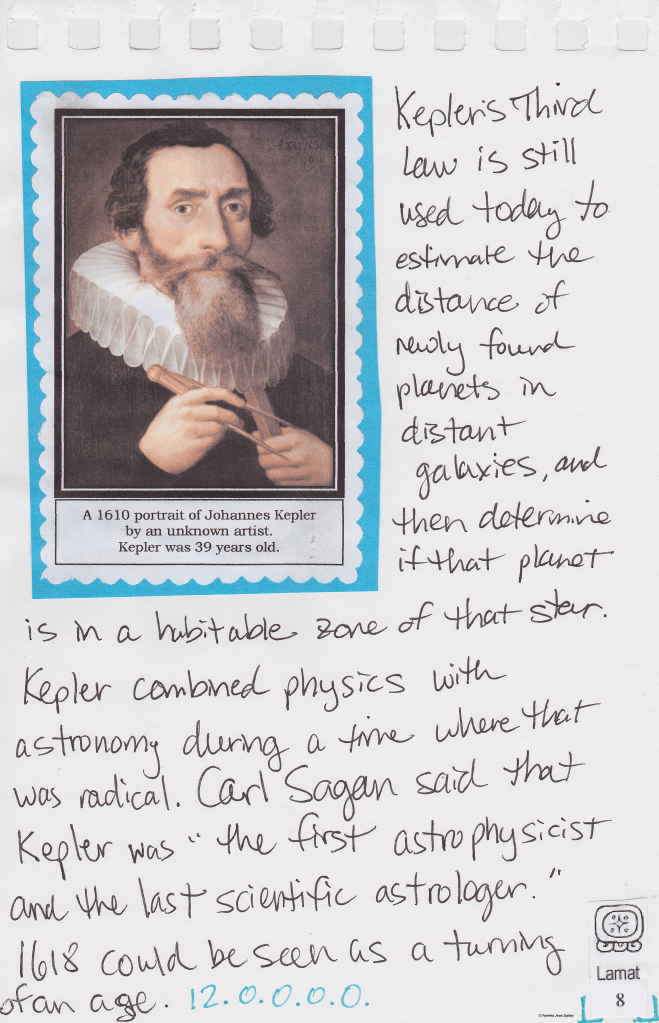 Kepler's Third
Law is still
used today to
estimate the
distance of
newly found
planets in
distant
galaxies, and
then determine
if that planet
is in a habitable zone of that star.
Kepler combined physics with
astronomy during a time where that
was radical. Carl Sagan said that
Kepler was "the first astrophysicist
and the last scientific astrologer."
1618 could be seen as a turning
of an age. 12.0.0.0.0.
A 1610 portrait of Johannes Kepler
by an unknown artist.
Kepler was 39 years old.
Lamat
8